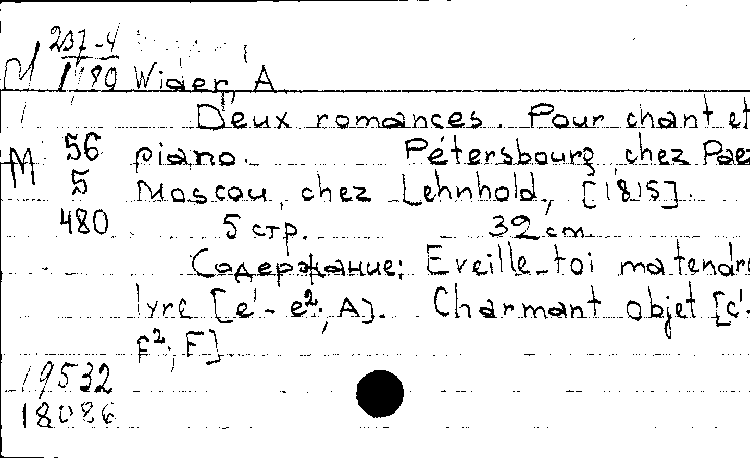 237-4
M 1180 Wider, A
Deux romances. Pour chant et
M 56 piano. Pétersbourg chez Paez
5 Moscou, chez Lehnhold, [1815].
480 5 стр. 32 cm
Содержание: Eveille-toi ma tendre
lyre [e'- e²; A]. Charmant objet [c'-
F²; F]
19532
18086